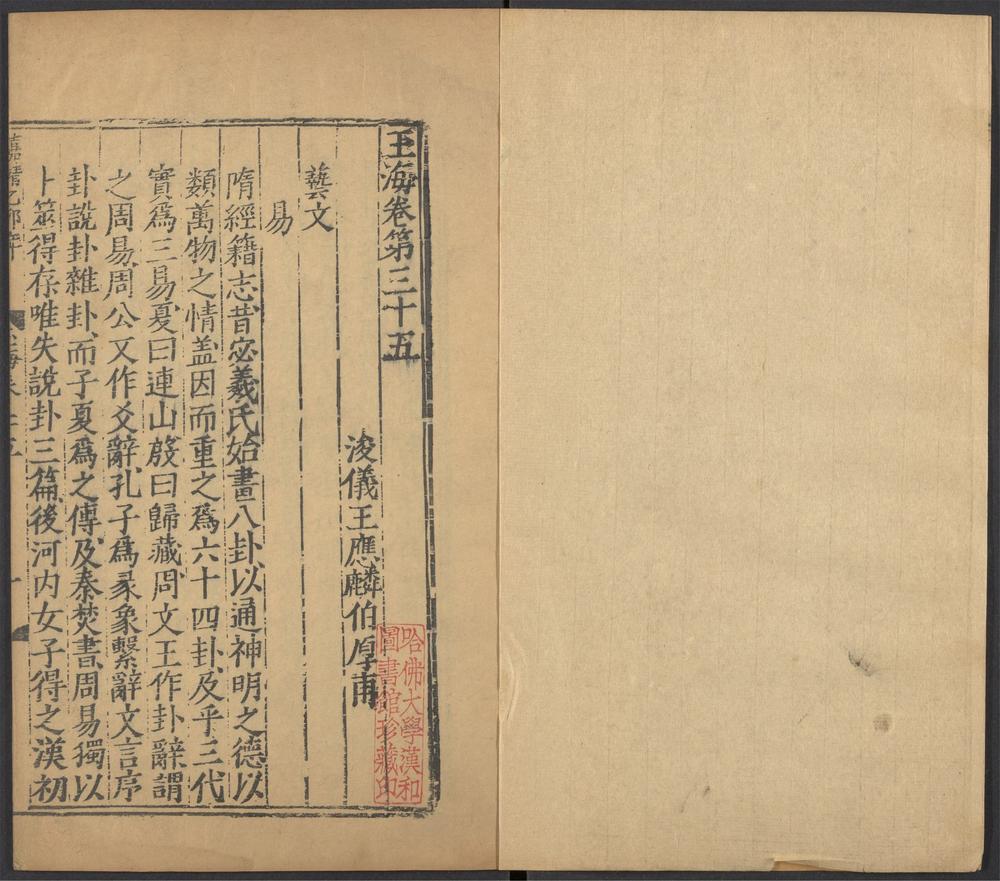 玉海卷第三十五
浚儀王應麟伯厚甫
藝文
易
隋經籍志昔宓羲氏始畫八卦以通神明之德以
類萬物之情盖因而重之爲六十四卦及乎三代
實爲三易夏曰連山殷曰歸藏周文王作卦辭謂
之周易周公又作爻辭孔子爲彖象繫辭文言序
卦說卦雜卦而子夏爲之傳及秦焚書周易獨以
卜筮得存唯失說卦三篇後河内女子得之漢初
哈佛大學漢和
圖書館珍藏印